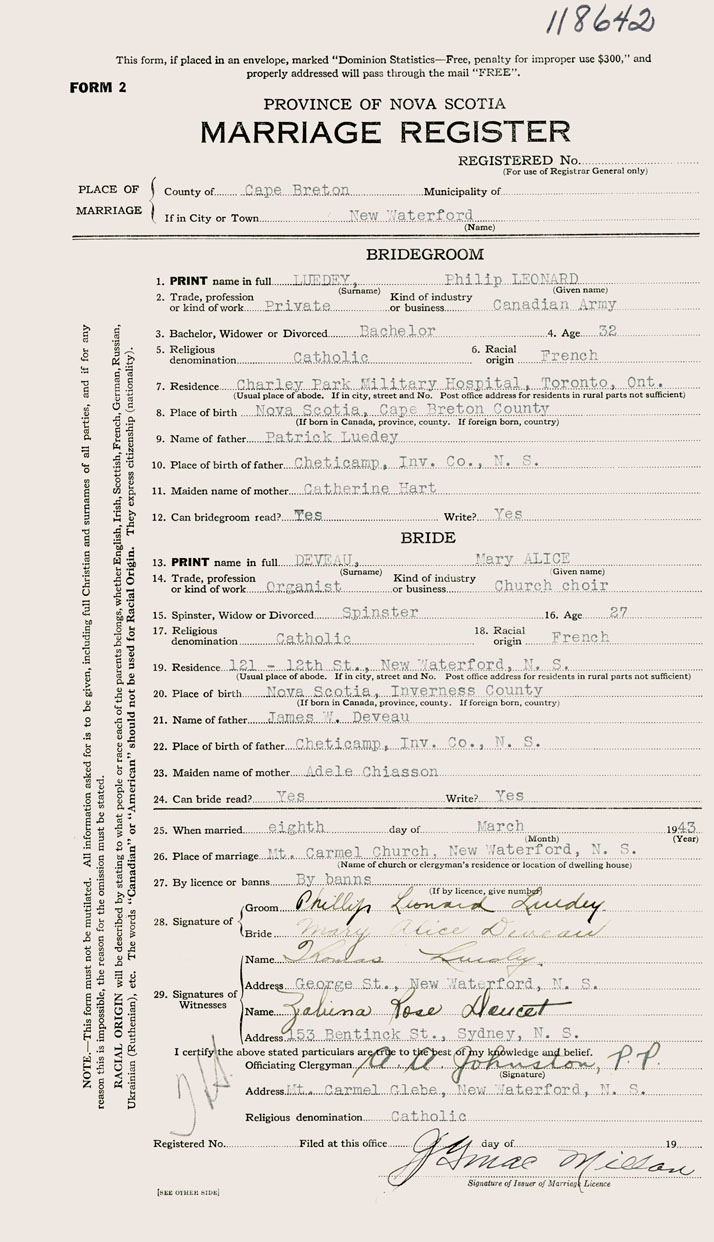 118642
This form, if placed in an envelope, marked "Dominion Statistics—Free, penalty for improper use $300," and
properly addressed will pass through the mail "FREE".
FORM 2
PROVINCE OF NOVA SCOTIA
MARRIAGE REGISTER
REGISTERED No.
(For use of Registrar General only)
PLACE OF MARRIAGE
County of Cape Breton Municipality of
If in City or Town New Waterford
(Name)
BRIDEGROOM
1. PRINT name in full LUEDEY, Philip LEONARD
(Surname) (Given name)
2. Trade, profession or kind of work Private Kind of industry or business Canadian Army
3. Bachelor, Widower or Divorced Bachelor 4. Age 32
5. Religious denomination Catholic 6. Racial origin French
7. Residence Charley Park Military Hospital, Toronto, Ont.
(Usual place of abode. If in city, street and No. Post office address for residents in rural parts not sufficient)
8. Place of birth Nova Scotia, Cape Breton County
(If born in Canada, province, county. If foreign born, country)
9. Name of father Patrick Luedey
10. Place of birth of father Cheticamp, Inv. Co., N. S.
11. Maiden name of mother Catherine Hart
12. Can bridegroom read? Yes Write? Yes
BRIDE
13. PRINT name in full DEVEAU, Mary ALICE
(Surname) (Given name)
14. Trade, profession or kind of work Organist Kind of industry or business Church choir
15. Spinster, Widow or Divorced Spinster 16. Age 27
17. Religious denomination Catholic 18. Racial origin French
19. Residence 121 - 12th St., New Waterford, N. S.
(Usual place of abode. If in city, street and No. Post office address for residents in rural parts not sufficient)
20. Place of birth Nova Scotia, Inverness County
(If born in Canada, province, county. If foreign born, country)
21. Name of father James W. Deveau
22. Place of birth of father Cheticamp, Inv. Co., N. S.
23. Maiden name of mother Adele Chiasson
24. Can bride read? Yes Write? Yes
25. When married eighth day of March 1943
(Month) (Year)
26. Place of marriage Mt. Carmel Church, New Waterford, N. S.
(Name of church or clergyman's residence or location of dwelling house)
27. By licence or banns By banns
(If by licence, give number)
28. Signature of
Groom Phillip Leonard Luedey.
Bride Mary Alice Deveau
29. Signatures of Witnesses
Name Thomas Luedey.
Address George St., New Waterford, N. S.
Name Zabina Rose Doucet
Address 153 Bentinck St., Sydney, N. S.
I certify the above stated particulars are true to the best of my knowledge and belief.
Officiating Clergyman A. A. Johnston, P.P.
(Signature)
Address Mt. Carmel Glebe, New Waterford, N. S.
Religious denomination Catholic
Registered No. Filed at this office day of 19
Signature of Issuer of Marriage Licence
[SEE OTHER SIDE]
NOTE.—This form must not be mutilated. All information asked for is to be given, including full Christian and surnames of all parties, and if for any
reason this is impossible, the reason for the omission must be stated.
RACIAL ORIGIN will be described by stating to what people or race each of the parents belongs, whether English, Irish, Scottish, French, German, Russian,
Ukrainian (Ruthenian), etc. The words "Canadian" or "American" should not be used for Racial Origin. They express citizenship (nationality).